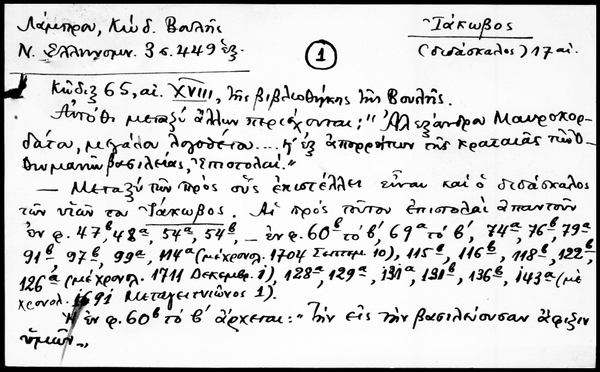 Λάμπρου, Κώδ. Βουλῆς
Ν. Ἑλληνομν. 3 σ. 449 ἑξ.
1
Ἰάκωβος
(διδάσκαλος) 17 αἰ.
Κῶδιξ 65, αἰ. XVIII, τῆς βιβλιοθήκης τῆς Βουλῆς.
Αὐτόθι μεταξὺ ἄλλων περιέχονται: "Ἀλεξάνδρου Μαυροκορ-
δάτου, μεγάλου λογοθέτου.... καὶ ἐξ ἀπορρήτων τῆς κραταιᾶς τῶν Ὀθ-
θωμανῶν βασιλείας, Ἐπιστολαί."
— Μεταξὺ τῶν πρὸς οὓς ἐπιστέλλει εἶναι καὶ ὁ διδάσκαλος
τῶν υἱῶν του Ἰάκωβος. Αἱ πρὸς τοῦτον ἐπιστολαὶ ἀπαντοῦν
ἐν φ. 47β, 48α, 54α, 54β, — ἐν φ. 60β τὸ β', 69α τὸ β', 74α, 76β, 79α
91β 97β, 99α, 114α (μὲ χρονολ. 1704 Σεπτεμ. 10), 115β, 116β, 118β, 122β,
126α (μὲ χρονολ. 1711 Δεκεμβρ. 1), 128α, 129α, 131α, 131β, 136β, 143α (μὲ
χρονολ. 1691 Μεταγειτνιῶνος 1).
Ἡ ἐν φ. 60β τὸ β' ἄρχεται: "Τὴν εἰς τὴν βασιλεύουσαν ἄφιξιν
ὑμῶν„